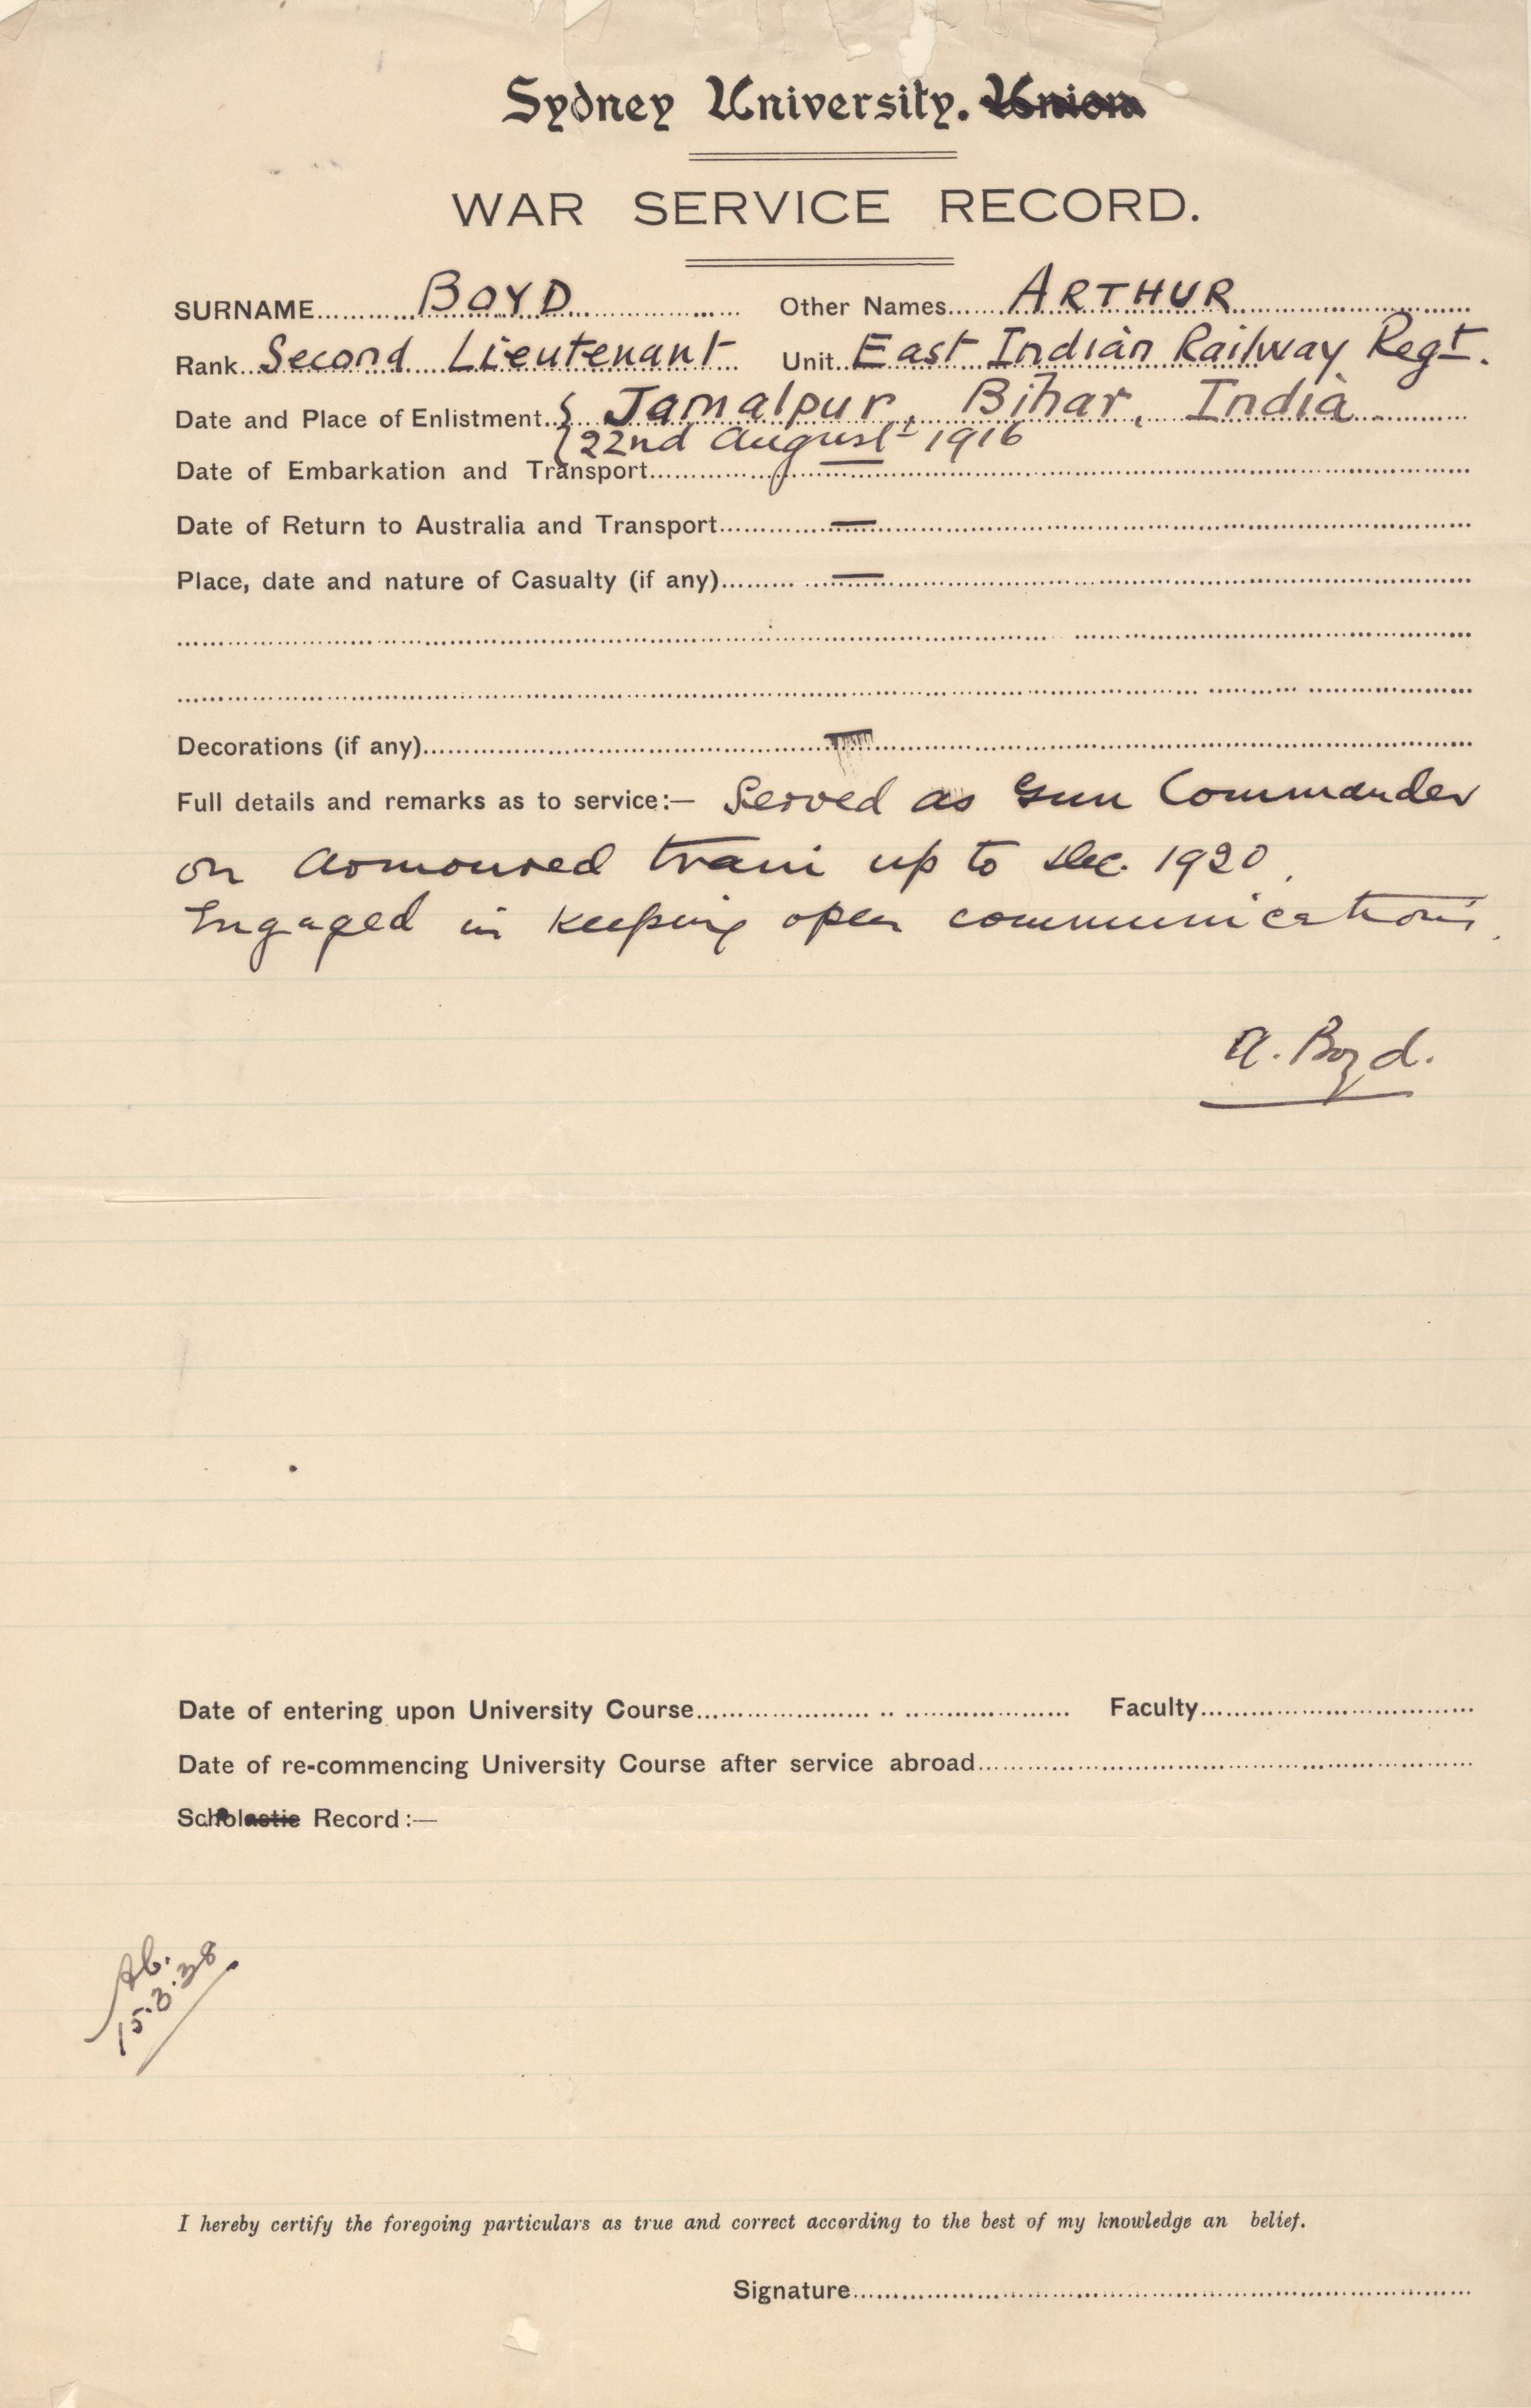 Sydney University. Union
WAR SERVICE RECORD.
SURNAME BOYD Other Names ARTHUR
Rank Second Lieutenant Unit East Indian Railway Regt.
Date and Place of Enlistment { Jamalpur, Bihar, India
22nd August 1916
Date of Embarkation and Transport —
Date of Return to Australia and Transport —
Place, date and nature of Casualty (if any) —
Decorations (if any) —
Full details and remarks as to service:— Served as Gun Commander
on armoured train up to Dec. 1920.
Engaged in keeping open communications.
A. Boyd.
Date of entering upon University Course Faculty
Date of re-commencing University Course after service abroad
Scholastic Record:—
Ab.
15.3.38
I hereby certify the foregoing particulars as true and correct according to the best of my knowledge an belief.
Signature